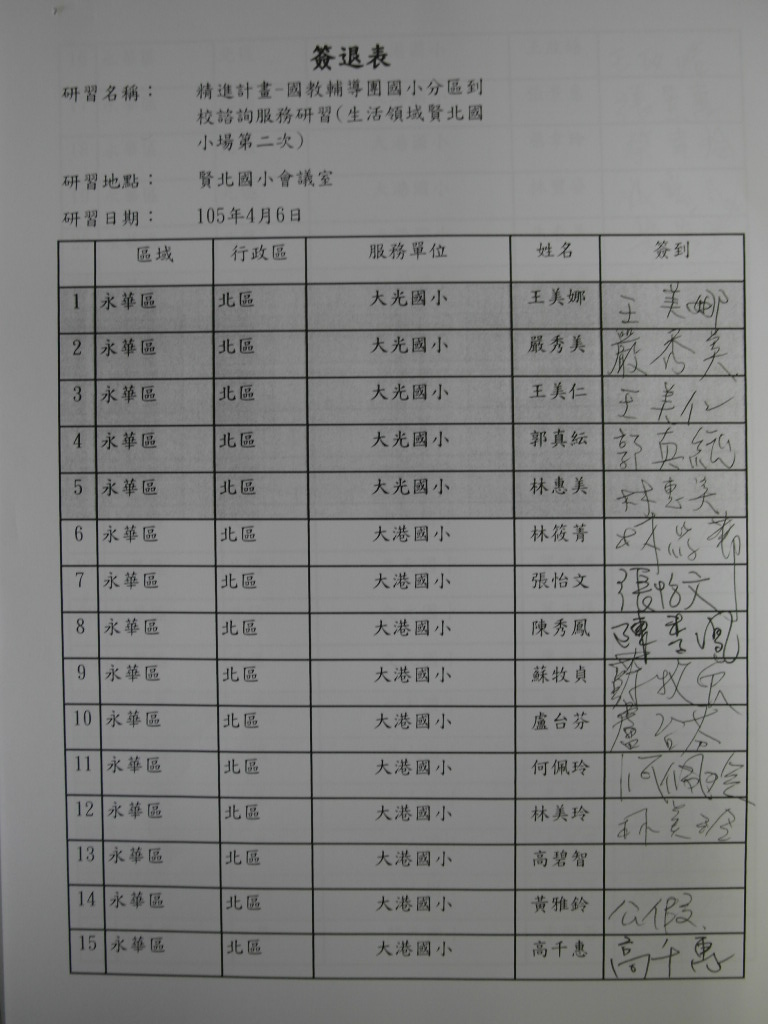 簽退表
研習名稱： 精進計畫-國教輔導團國小分區到
校諮詢服務研習(生活領域賢北國
小場第二次)
研習地點： 賢北國小會議室
研習日期： 105年4月6日
區域 行政區 服務單位 姓名 簽到
1 永華區 北區 大光國小 王美娜 王美娜
2 永華區 北區 大光國小 嚴秀美 嚴秀美
3 永華區 北區 大光國小 王美仁 王美仁
4 永華區 北區 大光國小 郭真紜 郭真紜
5 永華區 北區 大光國小 林惠美 林惠美
6 永華區 北區 大港國小 林筱菁 林筱菁
7 永華區 北區 大港國小 張怡文 張怡文
8 永華區 北區 大港國小 陳秀鳳 陳秀鳳
9 永華區 北區 大港國小 蘇牧貞 蘇牧貞
10 永華區 北區 大港國小 盧台芬 盧台芬
11 永華區 北區 大港國小 何佩玲 何佩玲
12 永華區 北區 大港國小 林美玲 林美玲
13 永華區 北區 大港國小 高碧智
14 永華區 北區 大港國小 黃雅鈴 公假.
15 永華區 北區 大港國小 高千惠 高千惠